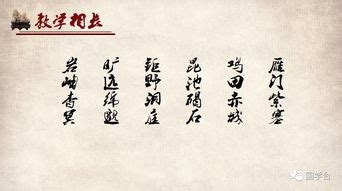 教学相长
雁门紫塞
鸡田赤城
昆池碣石
钜野洞庭
旷远绵邈
岩岫杳冥
国学台